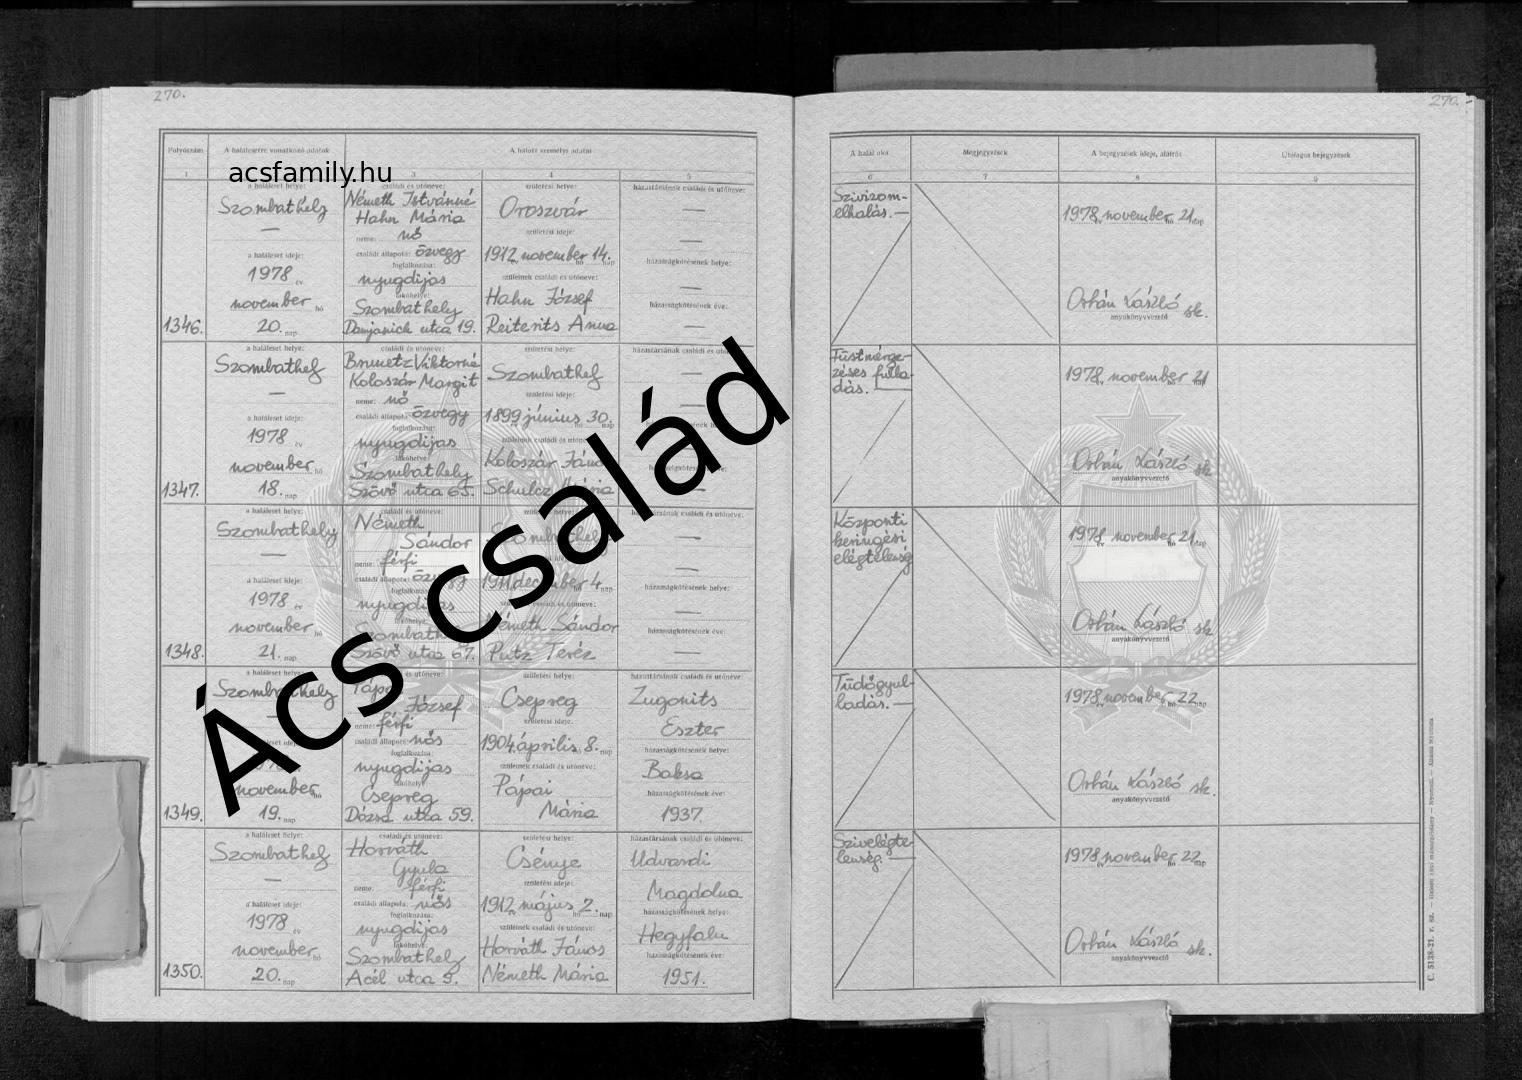 270.
270.
Folyószám
A halálesetre vonatkozó adatok
A halott személyi adatai
A halál oka
Megjegyzések
A bejegyzések ideje, aláírás
Utólagos bejegyzések
acsfamily.hu
1
3
4
5
6
7
8
9
1346.
a haláleset helye:
Szombathely
—
a haláleset ideje:
1978 év
november hó
20. nap
családi és utóneve:
Németh Istvánné
Hahn Mária
neme: nő
családi állapota: özvegy
foglalkozása:
nyugdíjas
lakóhelye:
Szombathely
Damjanich utca 19.
születési helye:
Oroszvár
születési ideje:
1912 november 14.
szüleinek családi és utóneve:
Hahn József
Reiterits Anna
házastársának családi és utóneve:
—
—
házasságkötésének helye:
—
házasságkötésének éve:
—
Szívizom-
elhalás. —
1978 november 21 nap
Orbán László sk.
anyakönyvvezető
1347.
a haláleset helye:
Szombathely
—
a haláleset ideje:
1978 év
november hó
18. nap
családi és utóneve:
Viktorné
Koloszár Margit
neme: nő
családi állapota: özvegy
foglalkozása:
nyugdíjas
lakóhelye:
Szombathely
Szövő utca 65.
születési helye:
Szombathely
születési ideje:
1899 június 30. nap
Koloszár
Schulcz Mária
—
—
—
Füstmérge-
zéses fulla-
dás. —
1978 november 21
Orbán László sk.
anyakönyvvezető
1348.
a haláleset helye:
Szombathely
—
a haláleset ideje:
1978 év
november hó
21. nap
családi és utóneve:
Németh
Sándor
neme: férfi
családi állapota: özvegy
foglalkozása:
nyugdíjas
Szombathely
Szövő utca 67.
Szombathely
1911 december 4. nap
Németh Sándor
Putz Teréz
házastársának családi és utóneve:
—
—
házasságkötésének helye:
—
házasságkötésének éve:
—
Központi
keringési
elégtelenség
1978 november 21 nap
Orbán László sk.
anyakönyvvezető
1349.
a haláleset helye:
Szombathely
november hó
19. nap
József
neme: férfi
családi állapota: nős
foglalkozása:
nyugdíjas
lakóhelye:
Csepreg
Dózsa utca 59.
születési helye:
Csepreg
születési ideje:
1904 április 8. nap
szüleinek családi és utóneve:
Pápai
Mária
házastársának családi és utóneve:
Zugonits
Eszter
házasságkötésének helye:
Baksa
házasságkötésének éve:
1937.
Tüdőgyul-
ladás. —
1978 november 22 nap
Orbán László sk.
anyakönyvvezető
1350.
a haláleset helye:
Szombathely
—
a haláleset ideje:
1978 év
november hó
20. nap
családi és utóneve:
Horváth
Gyula
neme: férfi
családi állapota: nős
foglalkozása:
nyugdíjas
lakóhelye:
Szombathely
Acél utca 5.
születési helye:
Csénye
születési ideje:
1912 május 2. nap
szüleinek családi és utóneve:
Horváth János
Németh Mária
házastársának családi és utóneve:
Udvardi
Magdolna
házasságkötésének helye:
Hegyfalu
házasságkötésének éve:
1951.
Szívelégte-
lenség. —
1978 november 22 nap
Orbán László sk.
anyakönyvvezető
Ács család
C. 5138-21. r. sz.